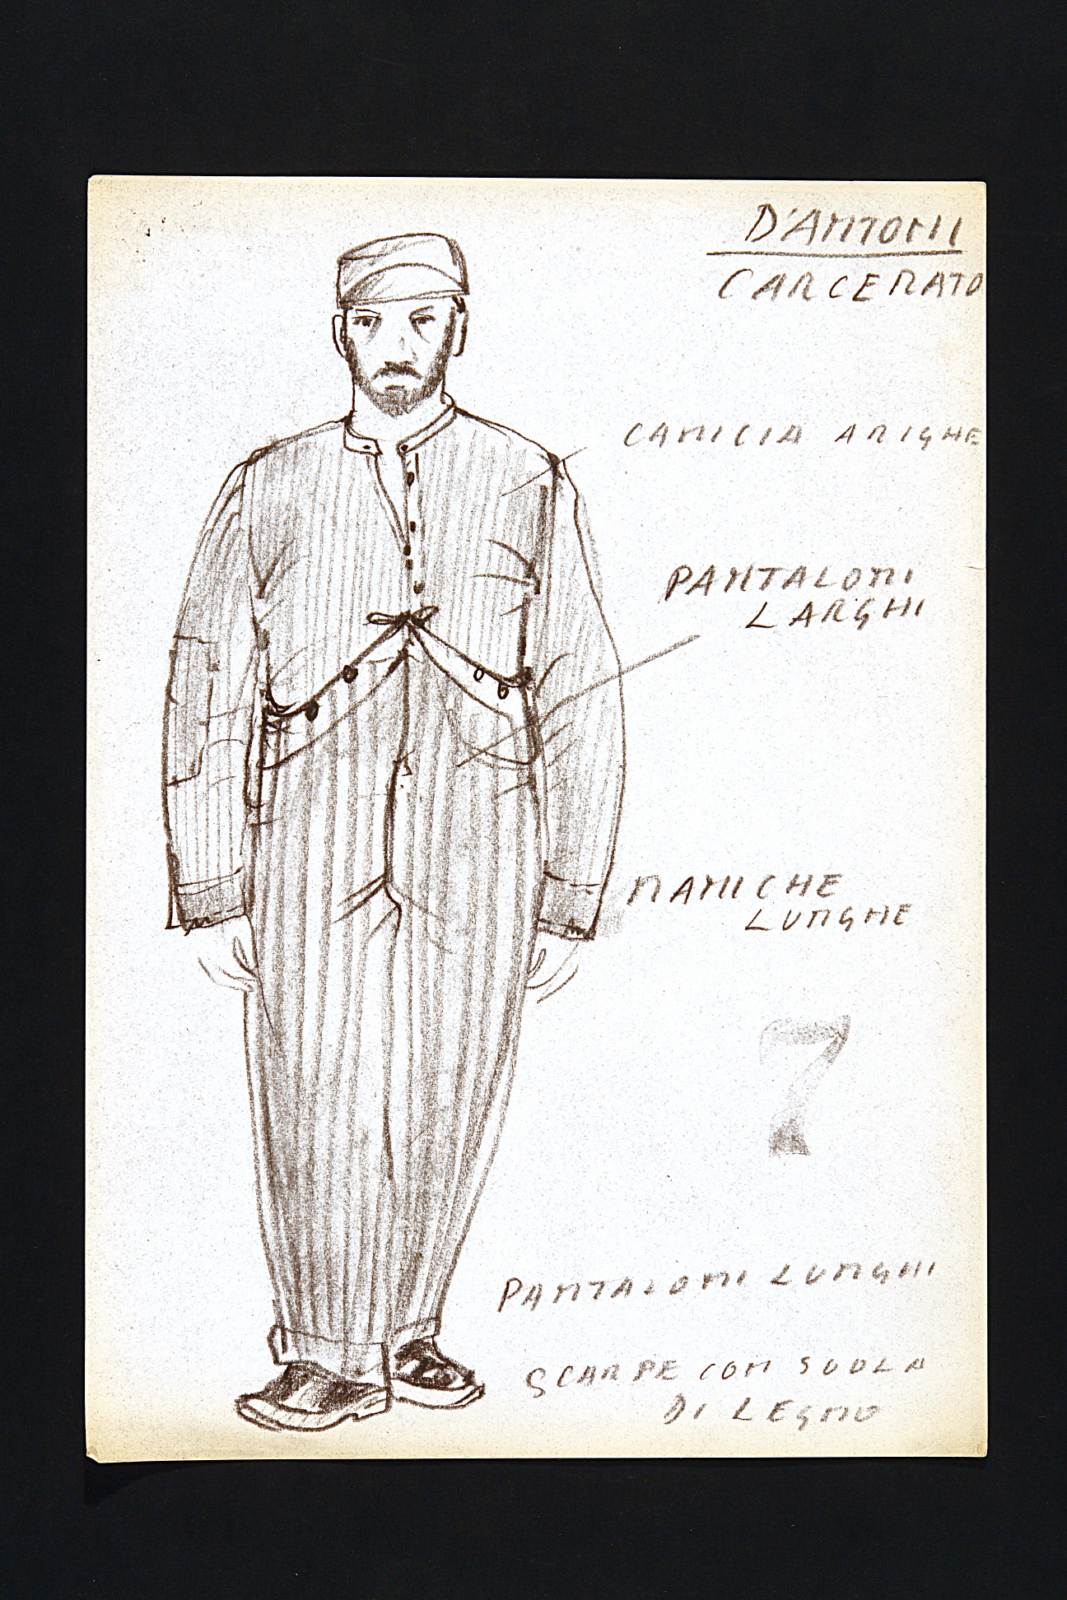 D'ANTONI
CARCERATO
CAMICIA A RIGHE
PANTALONI
LARGHI
MANICHE
LUNGHE
7
PANTALONI LUNGHI
SCARPE CON SUOLA
DI LEGNO